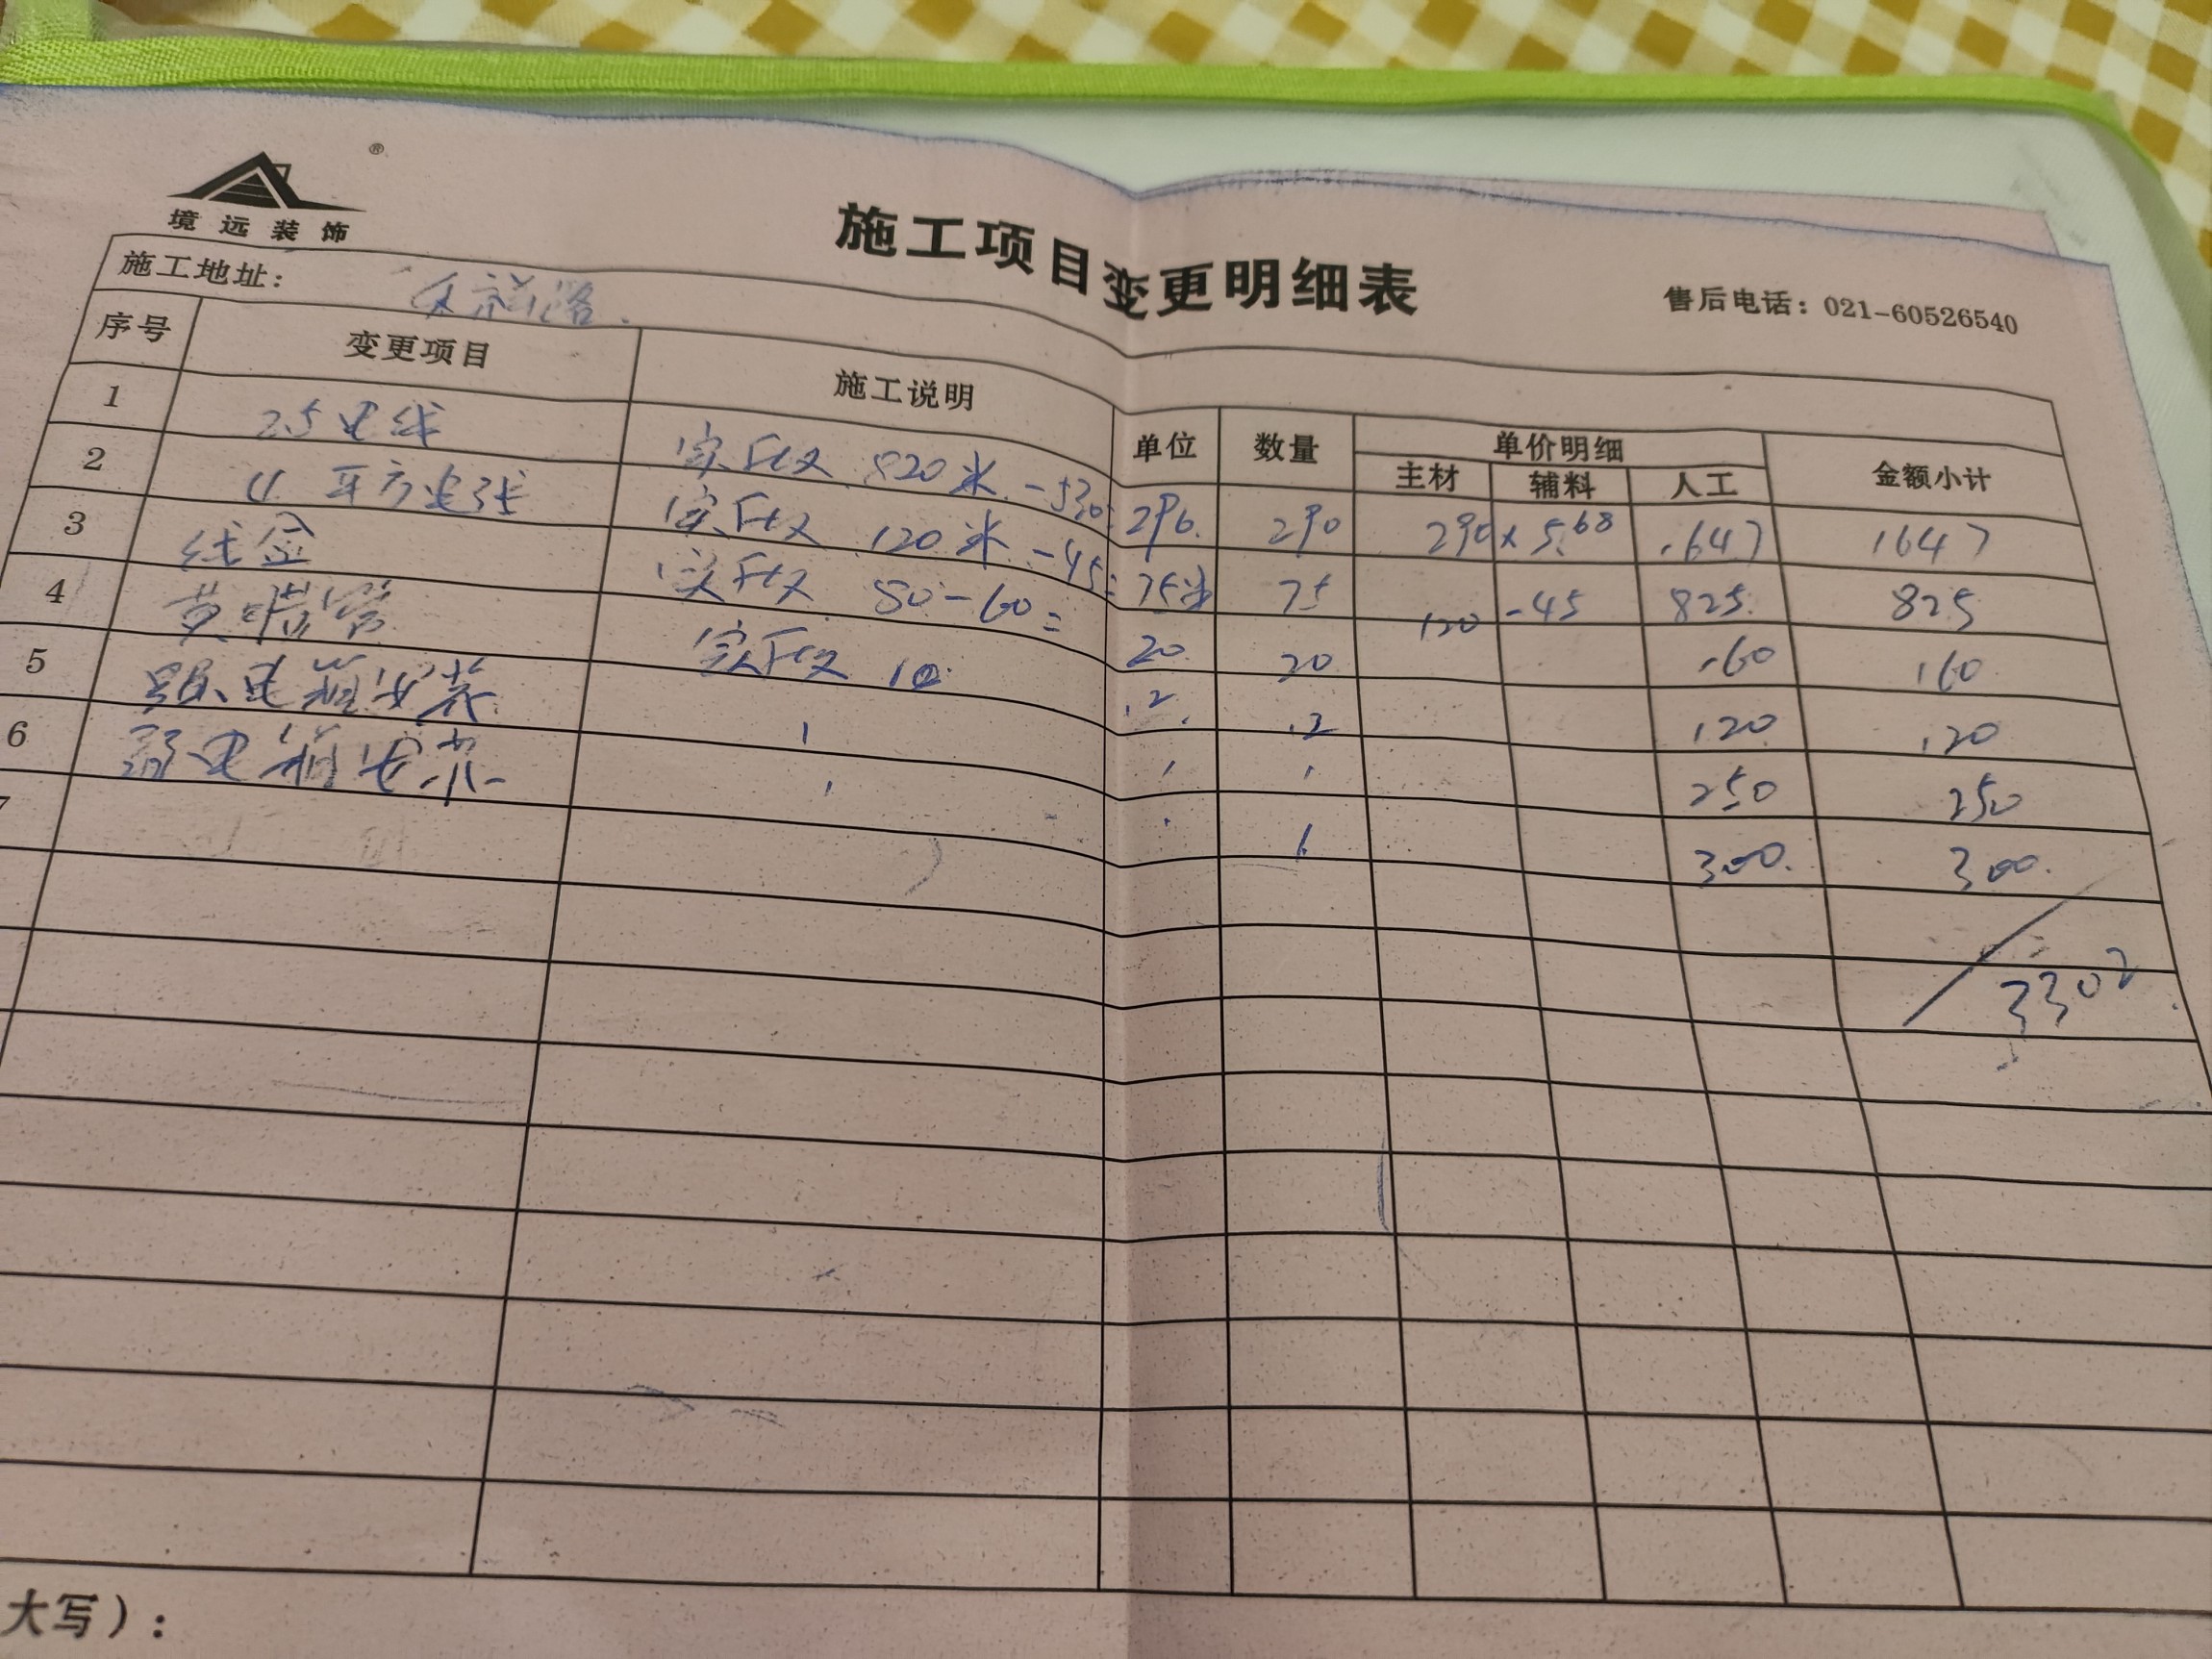 境远装饰®
施工项目变更明细表
施工地址:
售后电话: 021-60526540
序号 变更项目 施工说明 单位 数量 单价明细 金额小计
主材 辅料 人工
1 2.5电线 实际 820米 -530= 290 290 290 x 5.68 1647 1647
2 4平方电线 实际 120米 -45= 75米 75 120 -45 825 825
3 线盒 实际 80-60= 20 20 160 160
4 黄蜡管 实际 12 12 120 120
5 强电箱安装 1 1 1 250 250
6 弱电箱安装 1 1 300 300
7
3302
大写):